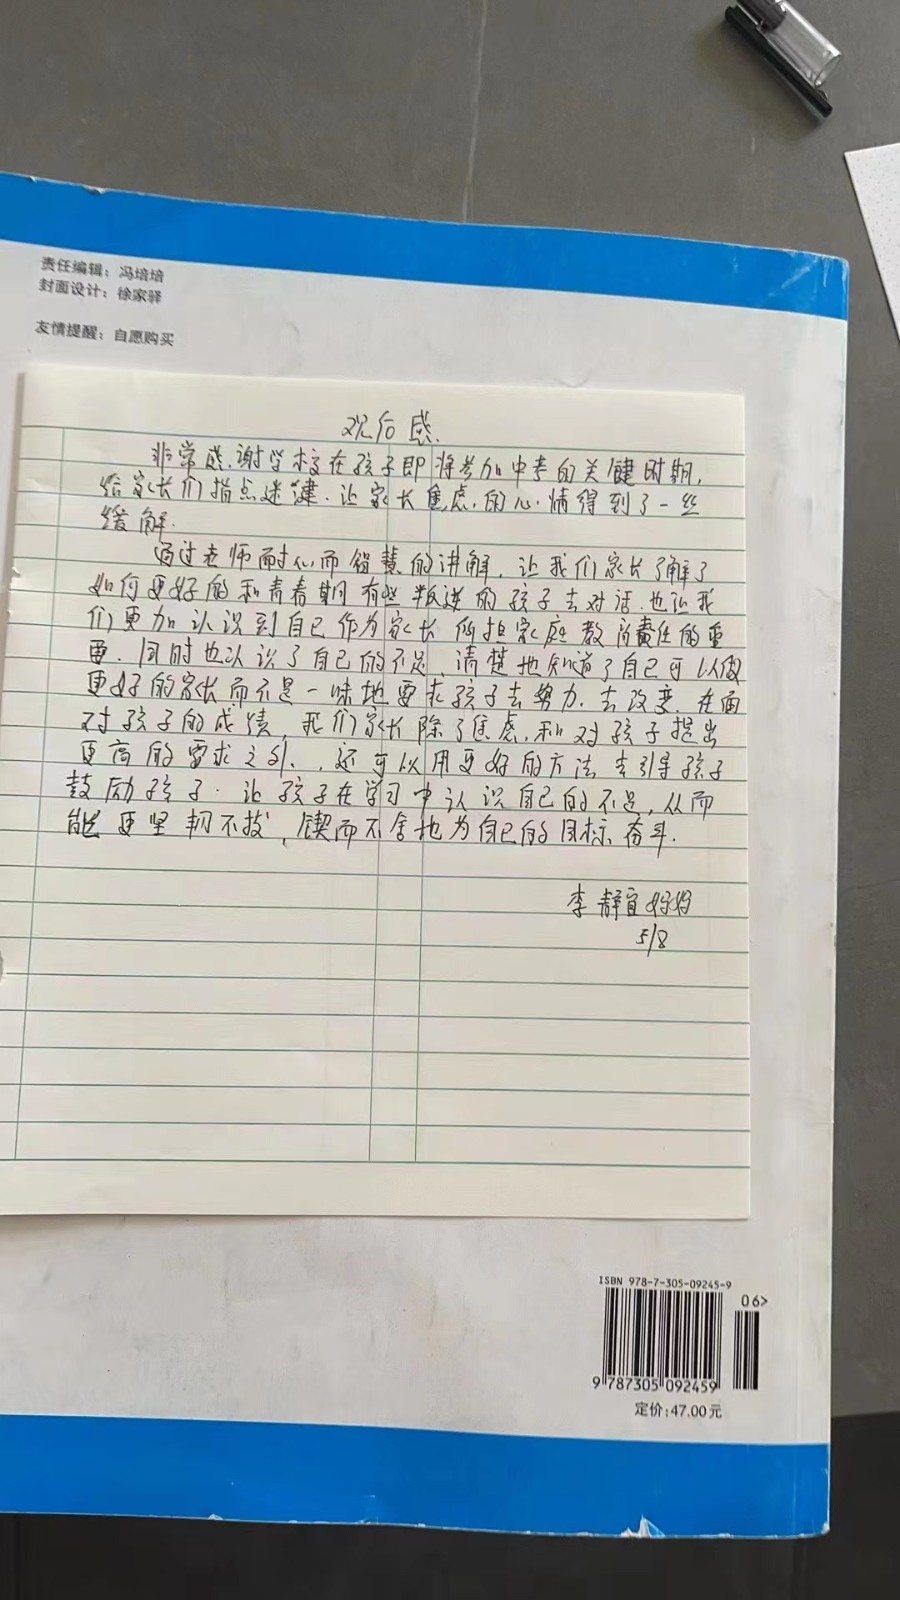 责任编辑：冯培培
封面设计：徐家驿
友情提醒：自愿购买
观后感.
非常感谢学校在孩子即将参加中考的关键时期,
给家长们指点迷津.让家长焦虑的心情得到了一丝
缓解.
通过老师耐心而智慧的讲解,让我们家长了解了
如何更好的和青春期有些叛逆的孩子去对话.也让我
们更加认识到自己作为家长所担家庭教育责任的重
要.同时也认识了自己的不足,清楚地知道了自己可以做
更好的家长而不是一味地要求孩子去努力.去改变.在面
对孩子的成绩,我们家长除了焦虑,和对孩子提出
更高的要求之外.,还可以用更好的方法去引导孩子
鼓励孩子.让孩子在学习中认识自己的不足,从而
能更坚韧不拔,锲而不舍地为自己的目标奋斗.
李静宜妈妈
5/8
ISBN 978-7-305-09245-9
06>
9 787305 092459
定价:47.00元